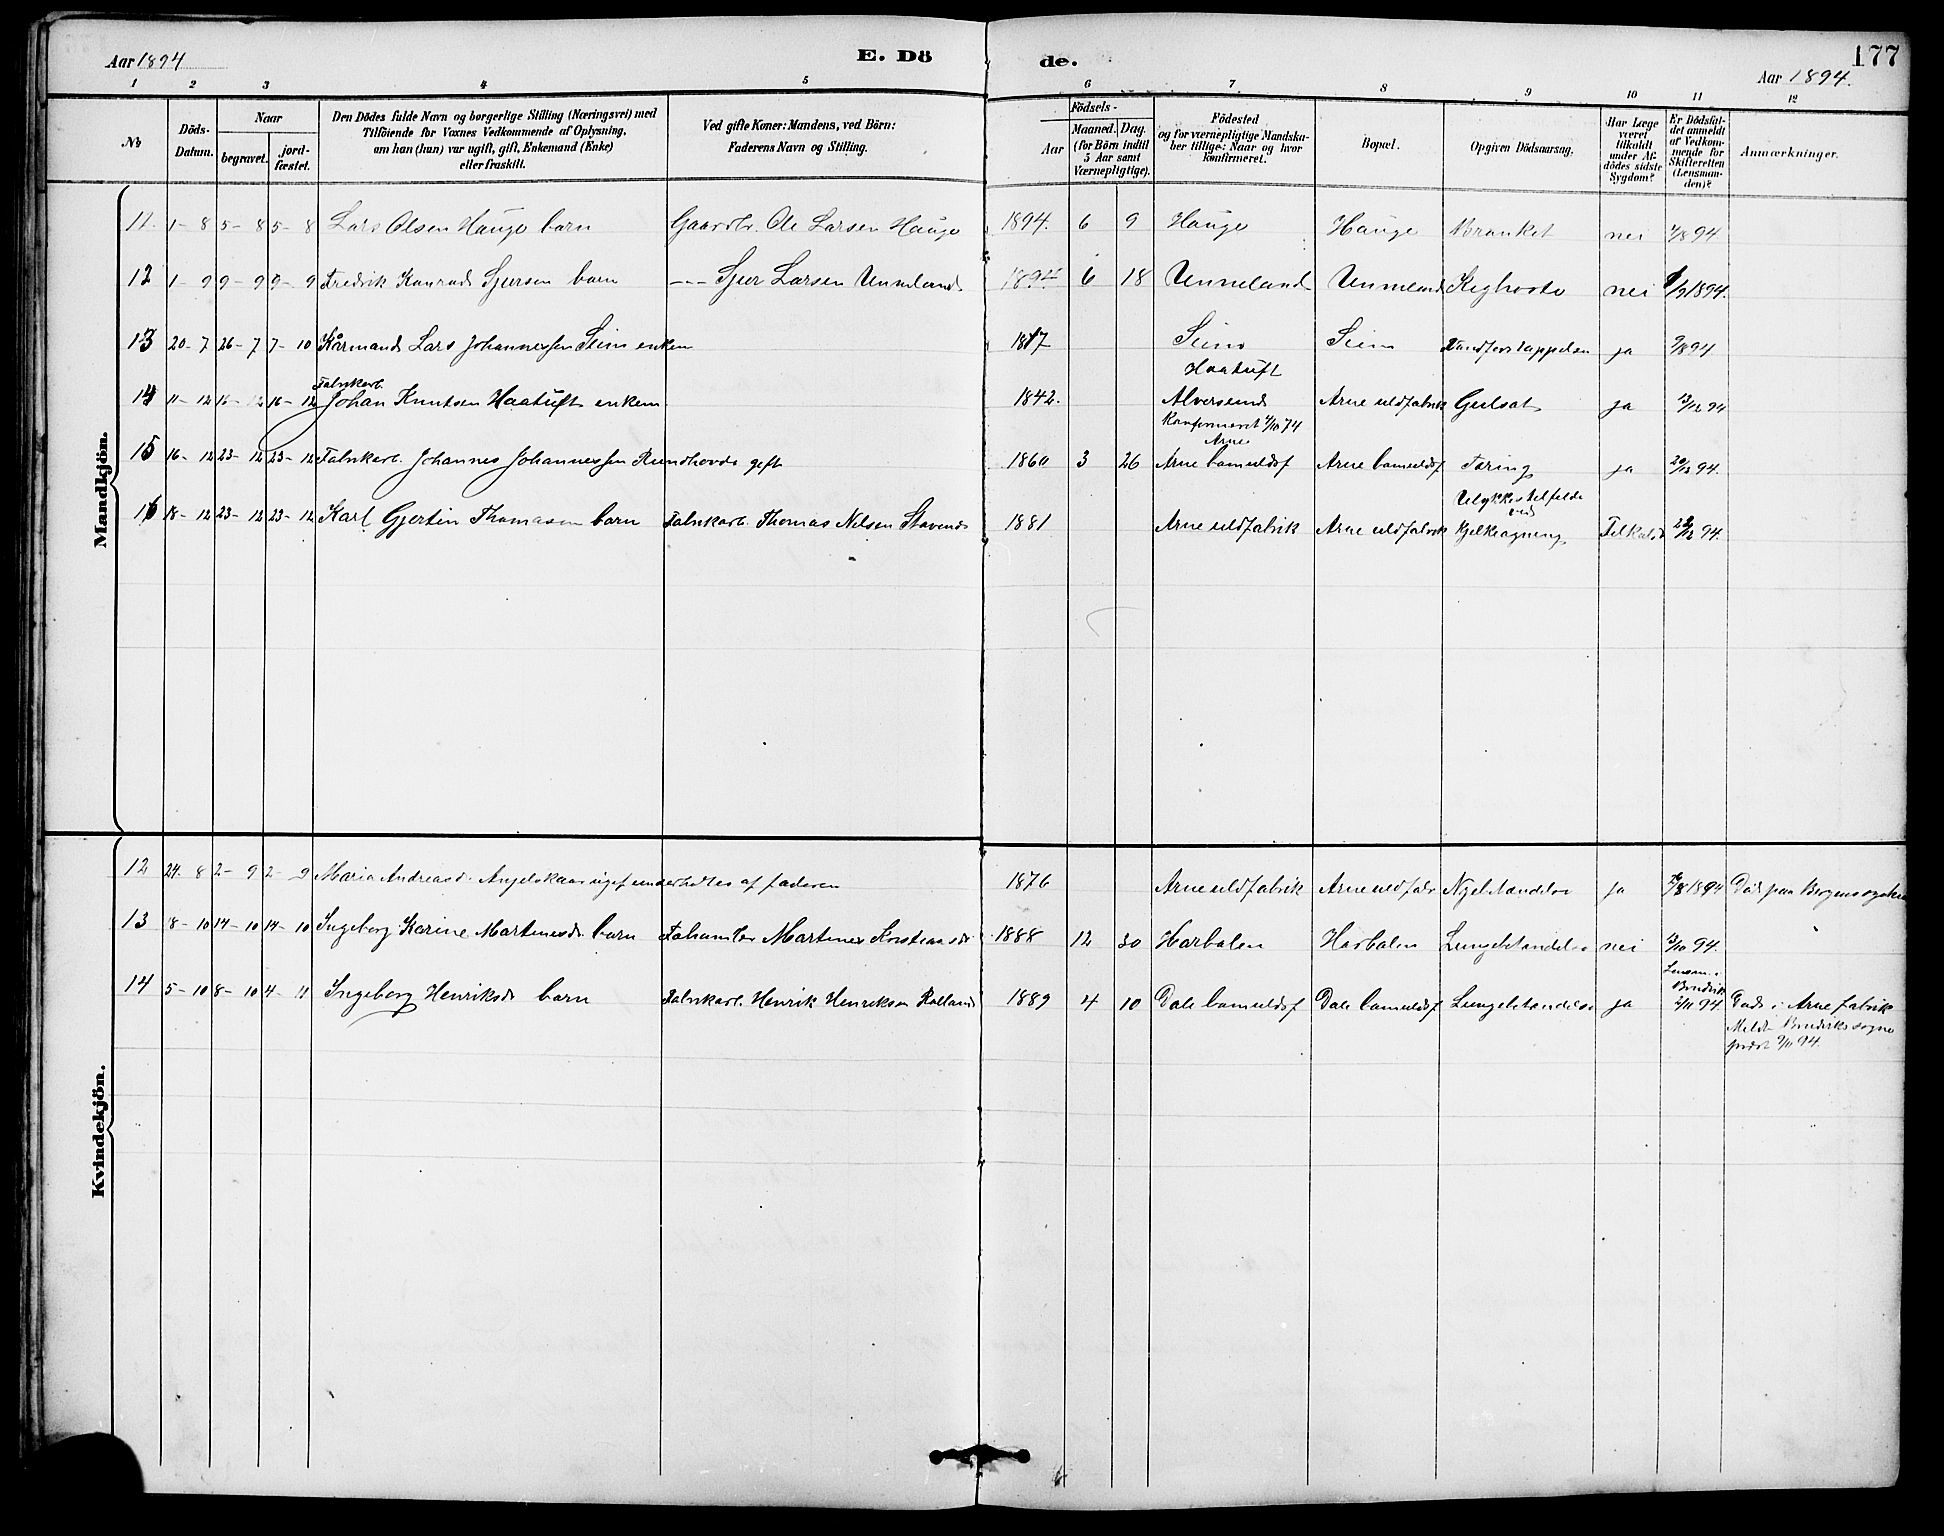 Aar 1894
E. Dö
de.
177
Aar 1894.
1 2 3 4 5 6 7 8 9 10 11 12
No
Döds-
Datum.
Naar
begravet.
jord-
fæstet.
Den Dödes fulde Navn og borgerlige Stilling (Næringsvei) med
Tilföiende for Voxnes Vedkommende af Oplysning,
om han (hun) var ugift, gift, Enkemand (Enke)
eller fraskilt.
Ved gifte Koner: Mandens, ved Börn:
Faderens Navn og Stilling.
Födsels-
Aar
Maaned.
Dag.
(for Börn indtil
5 Aar samt
Værnepligtige).
Födested
og for værnepligtige Mandska-
ber tillige: Naar og hvor
konfirmeret.
Bopæl.
Opgiven Dödsaarsag.
Har Læge
været
tilkaldt
under Af-
dödes sidste
Sygdom?
Er Dödsfal-
det anmeldt
af Vedkom-
mende for
Skifteretten
(Lensman-
den)?
Anmærkninger.
Mandkjön.
11. 1-8 5-8 5-8 Lars Olsen Hauge barn Gaardbr. Ole Larsen Hauge 1894. 6 9 Hauge Hauge nei /8 94
12 1-9 9-9 9-9 Fredrik Konrad Sjursen barn --- Sjur Larsen Unneland 1894 6 18 Unneland Unneland Kighoste nei /9 1894.
13 20-7 26-7 7-10 Kårmand Lars Johannessen Seim enkem 1817 Seim Seim ja /8 94
Fabrikarb.
Haatuft
14 11-12 16-12 16-12 Johan Knutsen Haatuft enkem 1842. Alversund Arne uldfabrik Gulsot ja 13/12 94
Konfirmeret 4/10 74
Arne
15 16-12 23-12 23-12 Fabrikarb. Johannes Johannessen Rundhovde gift 1860 3 26 Arne bomuldsf Arne bomuldsf Tæring ja 20/12 94.
Ulykkestilfelde
ved
16 18-12 23-12 23-12 Karl Gjertin Thomasen barn Fabrikarb. Thomas Nilsen Stavend 1881 Arne uldfabrik Arne uldfabrik kjelkeagning Tilkaldt 22/12 94.
Kvindekjön.
12 24-8 2-9 2-9 Maria Andreasd. Angelskaar ugift underholdtes af faderen 1876 Arne uldfabrik Arne uldfabr ja /8 1894 Död paa Bergens sygehus
13 8-10 14-10 14-10 Ingeborg Karine Martinesd. barn Martines 1888 12 30 Harbalen Harbalen Lungebetændelse nei 13/10 94.
Lensm. i
Bruvik
14 5-10 8-10 4-11 Ingeborg Henriksd. barn Fabrikarb. Henrik Henriksen Rolland 1889 4 10 Dale bomuldsf Dale bomuldsf Lungebetændelse ja 2/11 94. Döde i Arne fabrik
Meldt Bruviks sogne
prest 9/11 94.